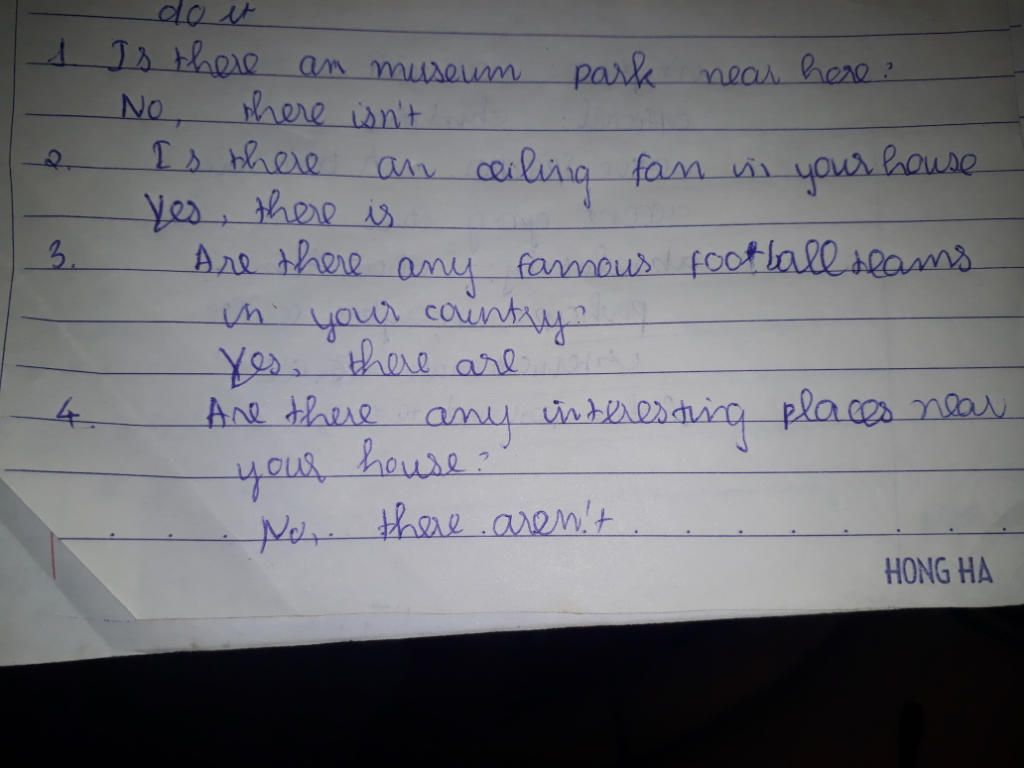 do it
1. Is there an museum park near here?
No, there isn't
2. Is there an ceiling fan in your house
Yes, there is
3. Are there any famous football teams
in your country?
Yes, there are
4. Are there any interesting places near
your house?
No, there aren't
HONG HA